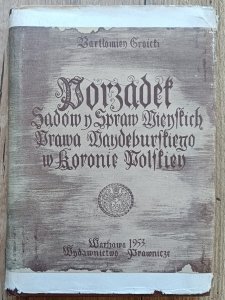 Bartłomiey Groicki
Porządek
Sądów y Spraw Mieyskich
Prawa Maydeburskiego
w Koronie Polskiey
Warszawa 1953
Wydawnictwo Prawnicze